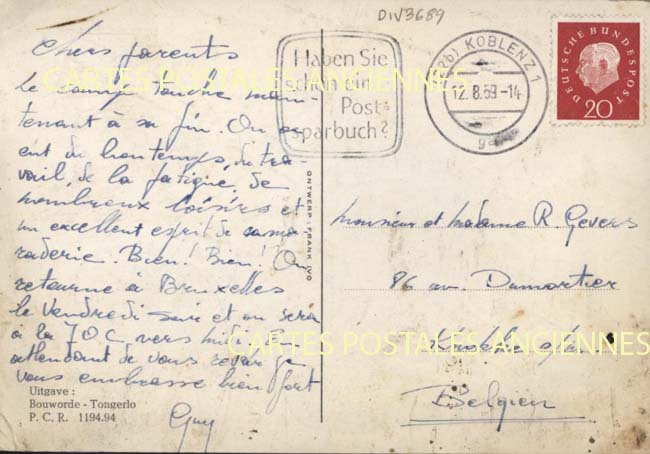 DIV3689
Chers parents
Le camp touche main-
tenant à sa fin. On a
eut du bon temps, du tra-
vail, de la fatigue, de
nombreux loisirs et
un excellent esprit de cama-
raderie. Bien! Bien! On
retourne à Bruxelles
le vendredi soir et on sera
à la J.O.C. vers
attendant de vous revoir je
vous embrasse bien fort
Guy
Uitgave :
Bouworde - Tongerlo
P. C. R. 1194.94
ONTWERP: FRANK IVO
Haben Sie
schon ein
Post-
sparbuch?
KOBLENZ 1
12.8.59.-14
DEUTSCHE BUNDESPOST
20
Monsieur et Madame R. Gevers
86 av. Dumortier
Belgien
CARTES POSTALES ANCIENNES
CARTES POSTALES ANCIENNES